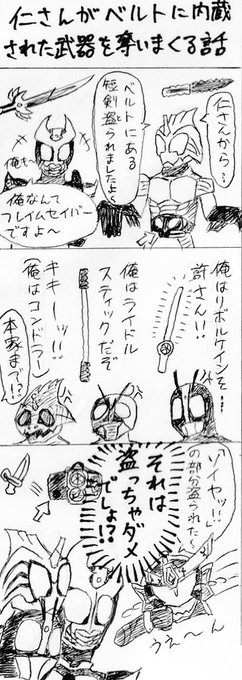 仁さんがベルトに内蔵
された武器を奪いまくる話
仁さんから…
ベルトにある
短剣盗
られましたよ〜
俺も〜
俺なんて
フレイムセイバー
ですよ〜
俺はリボルケインを…
許さん!!
俺はライドル
スティックだぞ
キキーッ!!
(俺はコンドラー)
本家まで!?
「ソイヤッ!!」
の部分盗られた〜
それは
盗っちゃダメ
でしょ!?
うえ〜ん